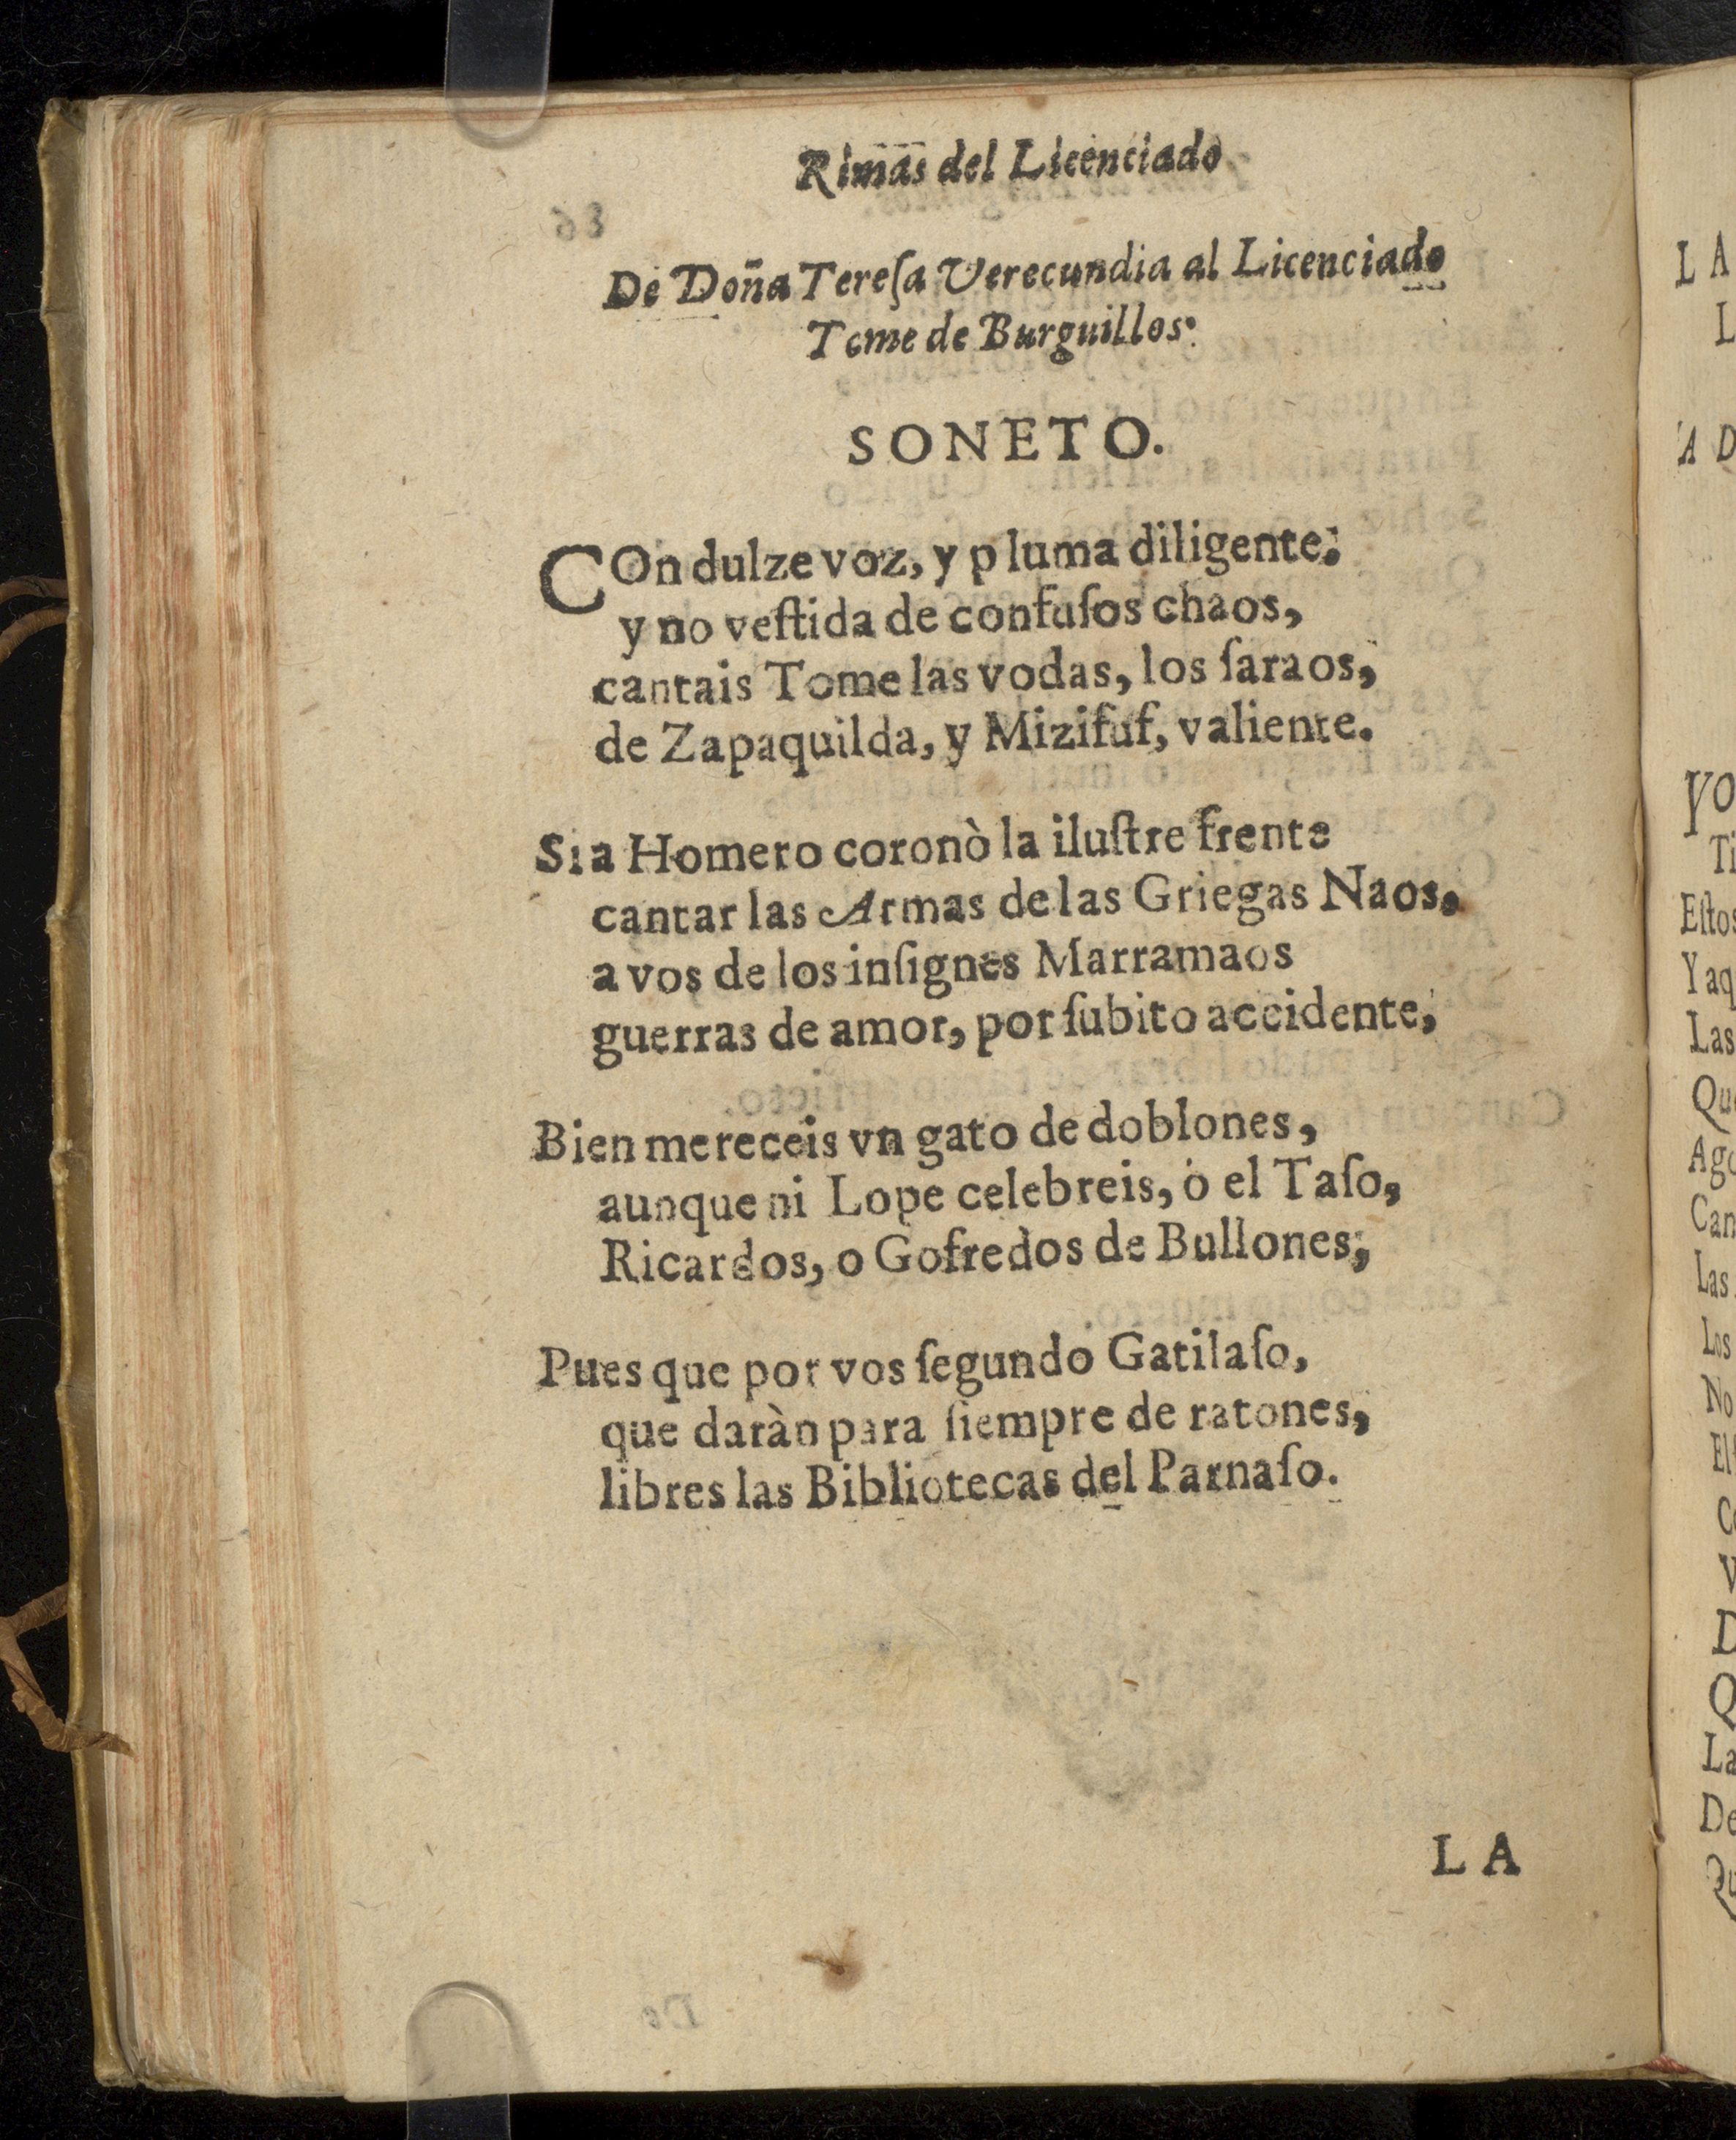 Rimas del Licenciado
De Doña Tereſa Verecundia al Licenciado
Tome de Burguillos.
SONETO.
COn dulze voz, y pluma diligente;
y no veſtida de confuſos chaos,
cantais Tome las vodas, los ſaraos,
de Zapaquilda, y Mizifuf, valiente.
Si a Homero coronò la iluſtre frente
cantar las Armas de las Griegas Naos,
a vos de los inſignes Marramaos
guerras de amor, por ſubito accidente,
Bien mereceis vn gato de doblones,
aunque ni Lope celebreis, o el Taſo,
Ricardos, o Gofredos de Bullones;
Pues que por vos ſegundo Gatilaſo,
que daràn para ſiempre de ratones,
libres las Bibliotecas del Parnaſo.
LA